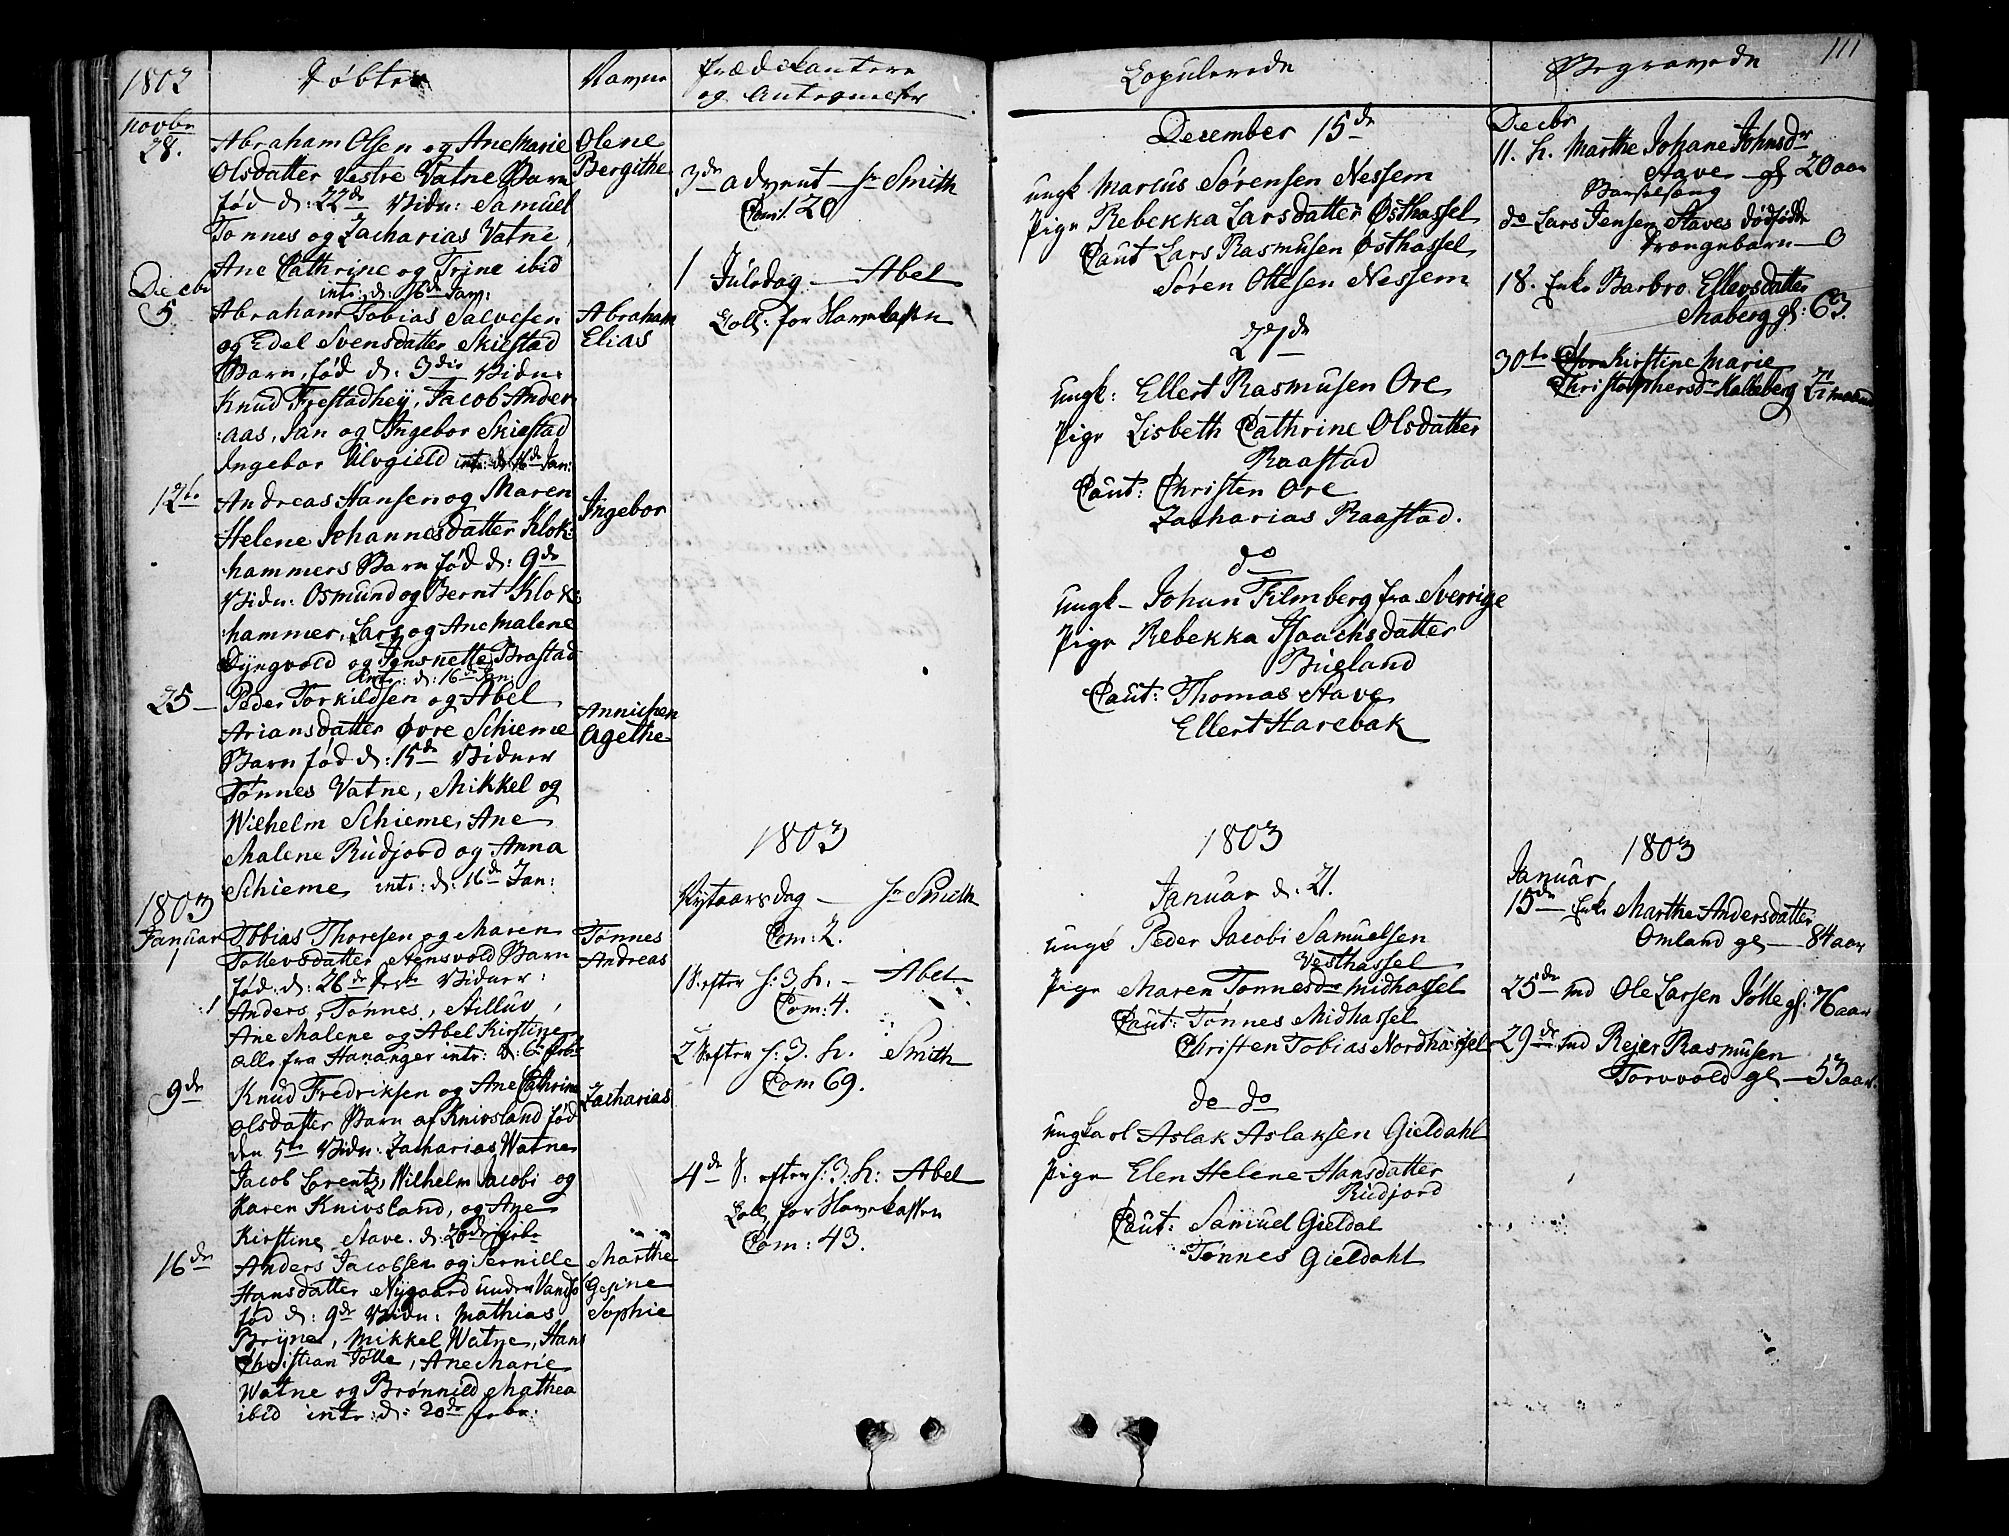 1802
Døbte
Navne
Prædikantere
og Autsomester
novbr
28.
Abraham Olsen og Ane Marie
Olsdatter Vestre Vatne Barn
fød d: 22de Vidn: Samuel
Tønnes og Zacharias Vatne
Ane Cathrine og Trine ibid
intr: d: 16de Jan:
Olene
Bergithe
Decbr
5
Abraham Tobias Salvesen
og Edel Svensdatter Skiestad
Barn, fød d: 3die Vidn:
Knud Frestadhey, Jacob Ander
:aas, Jan og Ingebor Skiestad
Ingebor Ulvgield intr: d: 16de Jan:
Abraham
Elias
12te
Andreas Hansen og Maren
Helene Johannesdatter Klok:
hammers Barn fød d: 9de
Vidn: Osmund og Bernt Klok:
hammer, Lars og Ane Malene
Dyngvold og Jensnette Brastad
intr: d: 16de Jan:
Ingebor
25
Peder Torkildsen og Abel
Ariansdatter Øvre Schieme
Barn fød d: 15de Vidner
Tønnes Vatne, Mikkel og
Wilhelm Schieme, Ane
Malene Rudjord og Anna
Schieme intr: d: 16de Jan:
Annichen
Agethe
1803
Januar
1
Tobias Thoresen og Maren
Tollevsdatter Agnsvold Barn
fød: d: 26de Vidner:
Anders, Tønnes,
Ane Malene og Abel Kirstine
alle fra Hananger intr: d: 6te febr
Tønnes
Andreas
9de
Knud Fredriksen og Ane Cathrine
Olsdatter Barn af Knivsland fød
den 5te Vidn: Zacharias Watne
Jacob Lorentz, Wilhelm Jacobi og
Karen Knivsland, og Ane
Kirstine Stave. d: 20de febr
Zacharias
16de
Anders Jacobsen og Pernille
Hansdatter Nygaard under Vandsø
fød d: 9de Vidn: Mathias
Bryne, Mikkel Watne, Hans
Christian Jølle, Ane Marie
Watne og Brønnild Mathea
ibid intr: d: 20de febr:
Marthe
Gesine
Sophie
3de advent - hr Smith
Com: 20
1 Juledag - Abel
Coll: for Havnekassen
1803
Nytaarsdag - hr Smith
Com: 2.
1 S. efter h: 3. k. - Abel
Com: 4.
2 S. efter h: 3. k. Smith
Com 69.
4de S. efter h: 3. k: Abel
Coll: for Havnekassen
Com: 43.
Copulerede
December 15de
ungk Marcus Sørensen Nessem
Pige Rebekka Larsdatter Østhassel
Caut Lars Rasmusen Østhassel
Søren Ottesen Nessem
27de
ungk: Ellert Rasmusen Ore
Pige Lisbeth Cathrine Olsdatter
Raastad
Caut: Christen Ore
Zacharias Raastad.
do
ungk - Johan Filmberg fra Sverrige
Pige Rebekka Isaachsdatter
Bueland
Caut: Thomas Stave
Ellert Harebak
1803
Januar d: 21.
ungk Peder Jacobi Samuelsen
Vesthassel
Pige Maren Tønnesdr Midhassel
Caut: Tønnes Midhassel
Christen Tobias Nordhassel
do do
ungkarl Aslak Aslaksen Gieldahl
Pige Elen Helene Hansdatter
Rudjord
Caut: Samuel Gieldal
Tønnes Gieldahl
Begravede
111
Decbr
11. h. Marthe Johane Johnsdr
Stave gl 20 aar
Barselseng
do Lars Jensen Staves dødfødde
drængebarn - 0
18. Enke Barbro Ellevsdatter
Maberg gl: 63.
30te Kirstine Marie
Christophersdr Kalleberg
1803
Januar
15de Enke Marthe Andersdatter
Omland gl - 84 aar
25de Ole Larsen Jølle gl: 76 aar
29de Rejer Rasmusen
Torvvold gl - 53 aar.